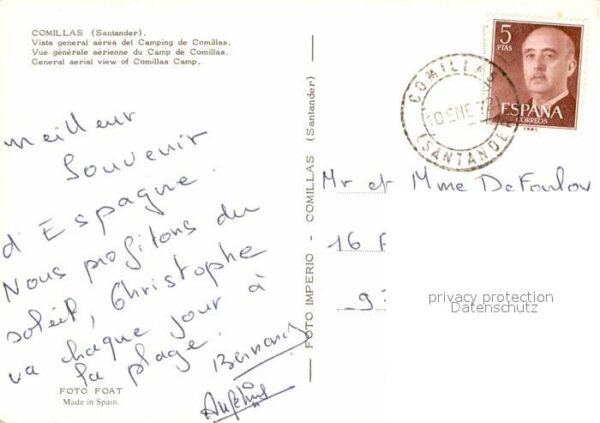 COMILLAS (Santander).
Vista general aérea del Camping de Comillas.
Vue générale aérienne du Camp de Comillas.
General aerial view of Comillas Camp.
meilleur
Souvenir
d'Espagne.
Nous profitons du
soleil, Christophe
va chaque jour à
la plage.
Bernard
FOTO FOAT
Made in Spain.
FOTO IMPERIO - COMILLAS (Santander)
5
PTAS
ESPAÑA
CORREOS
COMILLAS
10 ENE
(SANTANDER)
Mr et Mme
16
privacy protection
Datenschutz